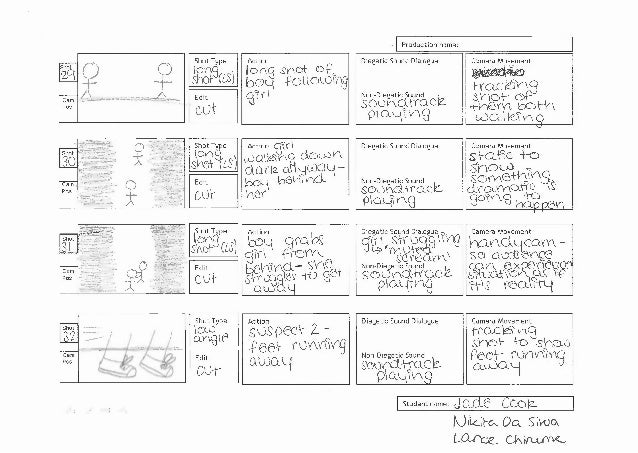 Production name:
Shot
29
Cam
Pos
Shot Type
long
shot (LS)
Edit
cut
Action
long shot of
boy following
girl
Diegetic Sound Dialogue
Non-Diegetic Sound
soundtrack
playing
Camera Movement
tracking
shot of
them both
walking
Shot
30
Cam
Pos
Shot Type
long
shot (LS)
Edit
cut
Action girl
walking down
dark allyway -
boy behind
her
Diegetic Sound Dialogue
Non-Diegetic Sound
soundtrack
playing
Camera Movement
static to
show
something
dramatic is
going to
happen
Shot
31
Cam
Pos
Shot Type
long
shot (LS)
Edit
cut
Action
boy grabs
girl from
behind - she
struggles to get
away
Diegetic Sound Dialogue
girl struggling
'muted
scream'
Non-Diegetic Sound
soundtrack
playing
Camera Movement
handycam -
so audience
can experience
situation as if
it's reality
Shot
32
Cam
Pos
Shot Type
low
angle
Edit
cut
Action
suspect 2 -
feet running
away
Diegetic Sound Dialogue
Non-Diegetic Sound
soundtrack
playing
Camera Movement
tracking
shot to show
feet running
away
Student name: Jade Cook
Nikita Da Silva
Lance Chirume